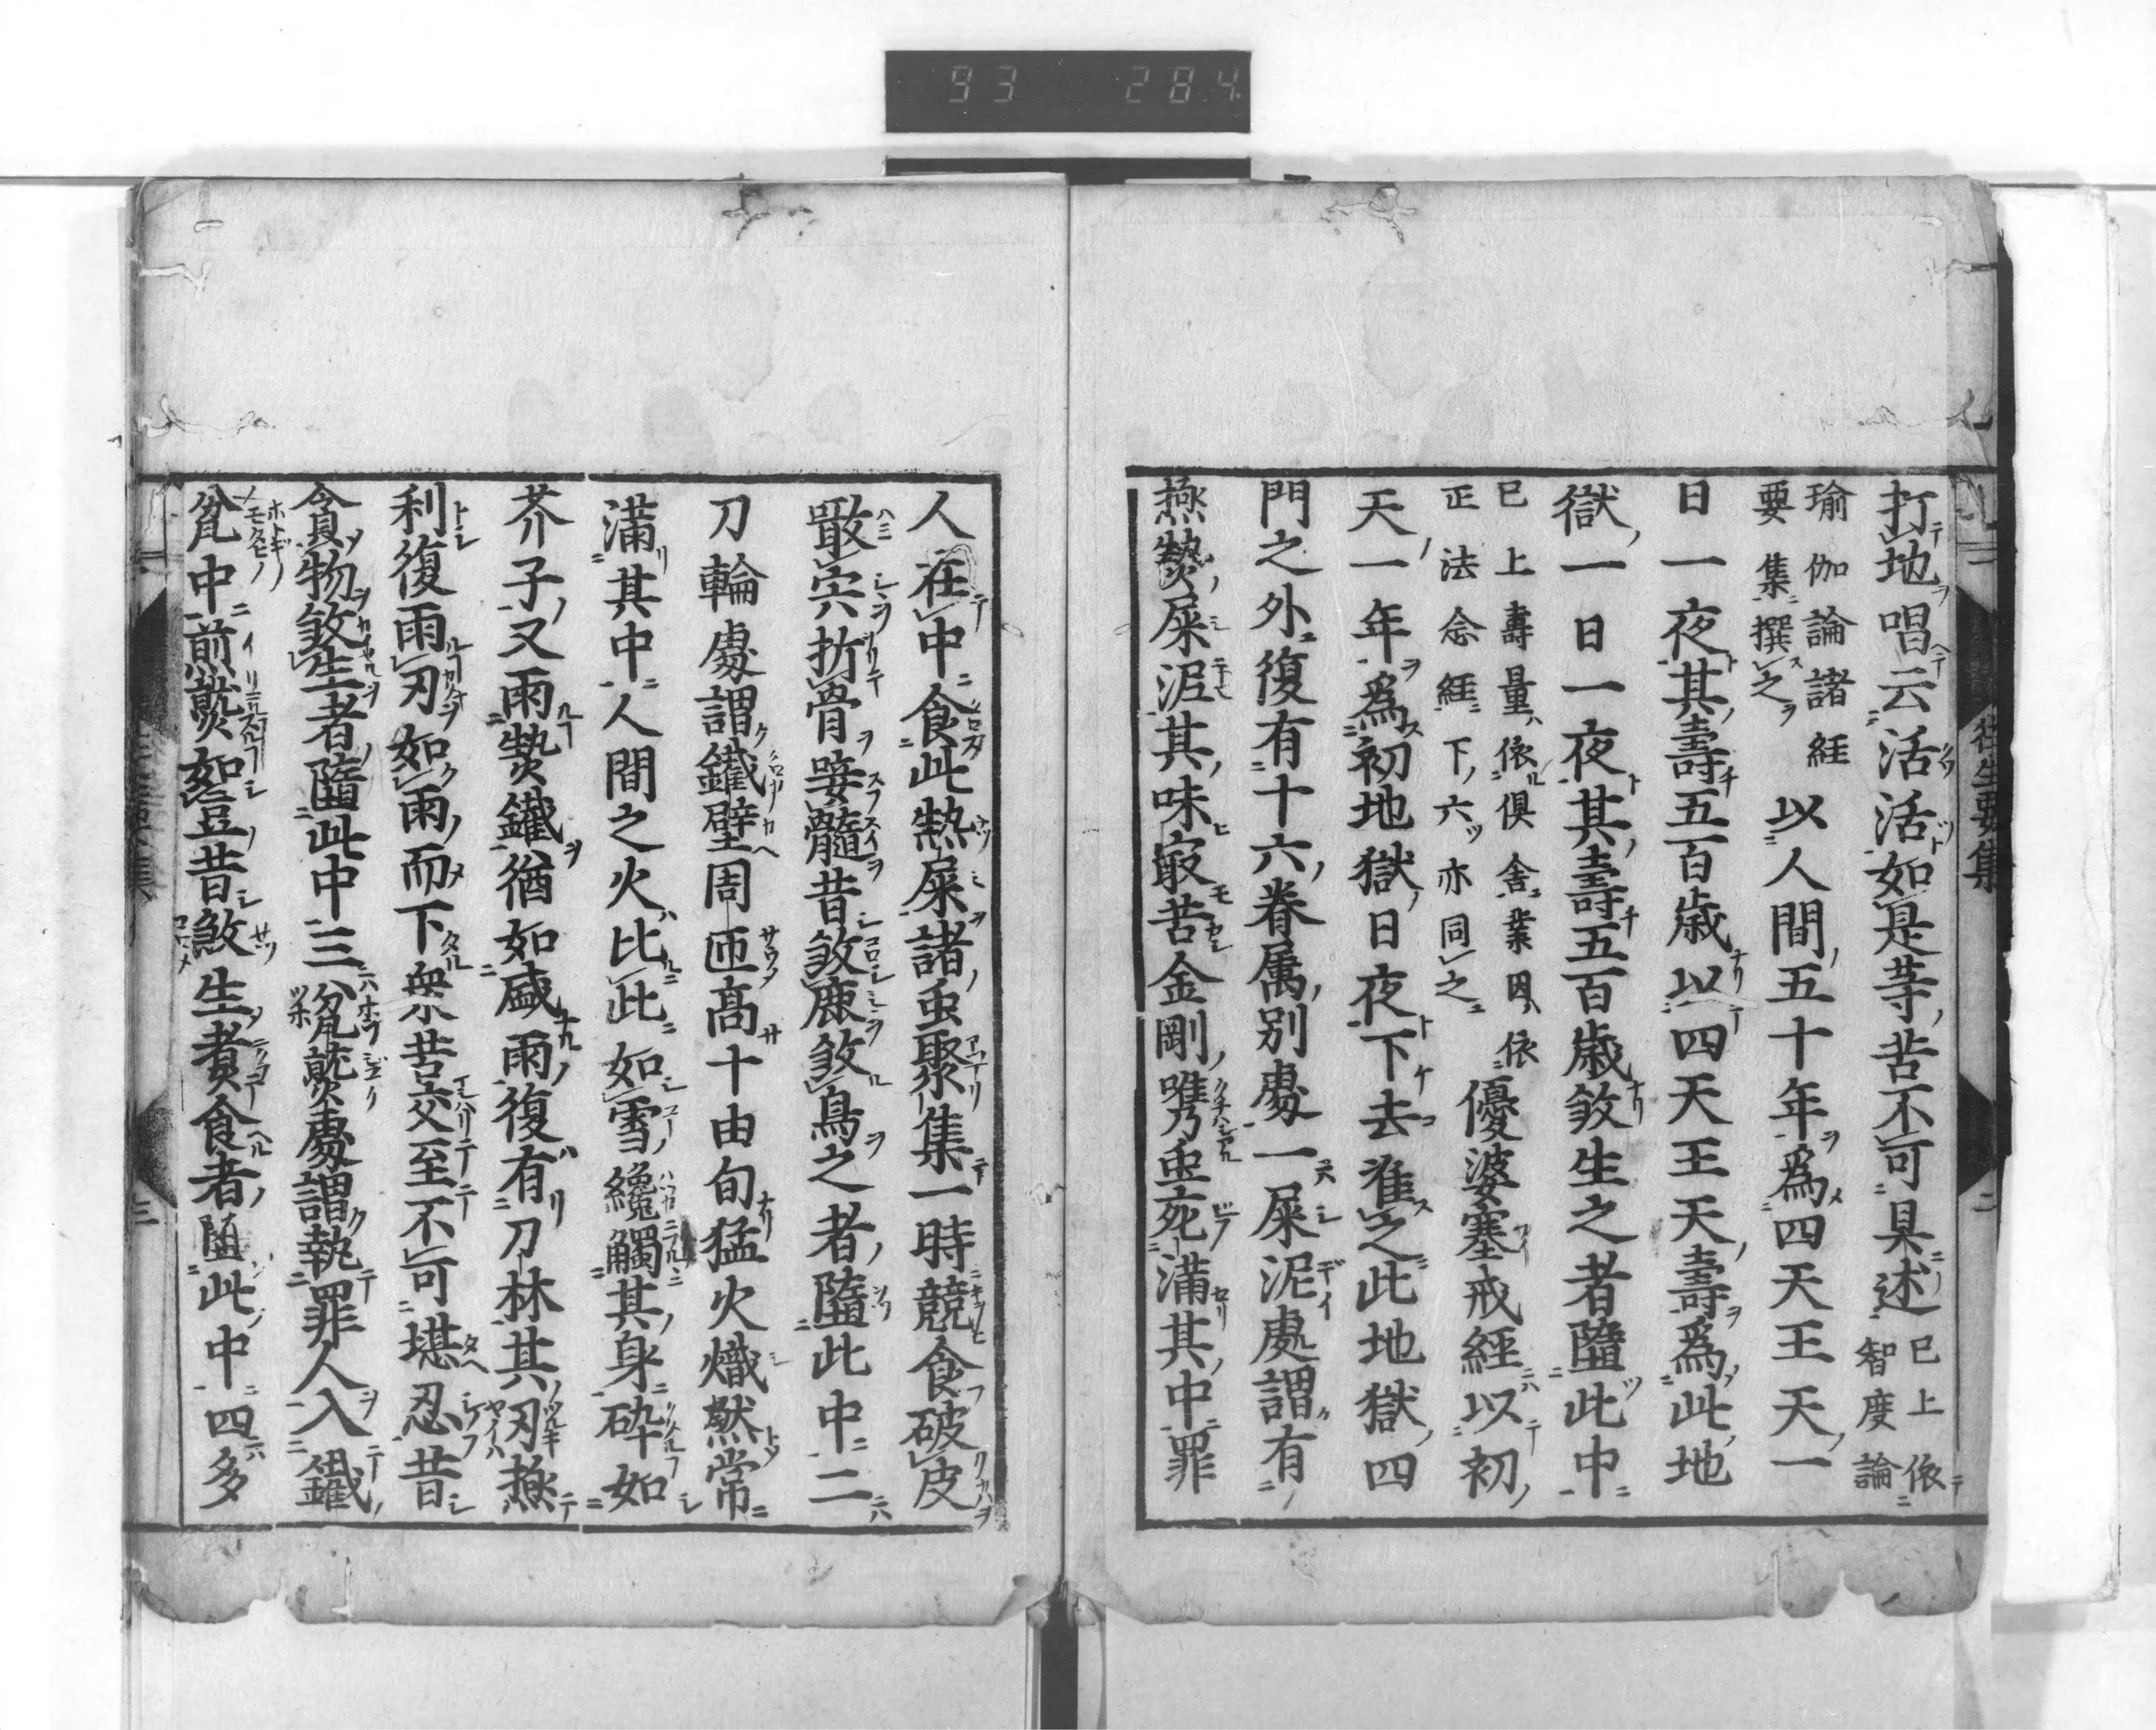 93 284
往生要集
二
打地唱云活活如是等苦不可具述已上依
智度論
瑜伽論諸経
要集撰之以人間五十年爲四天王天一
日一夜其壽五百歳以四天王天壽爲此地
獄一日一夜其壽五百歳敓生之者隨此中
已上壽量依倶舎業因依
正法念経下六亦同之優婆塞戒經以初
天一年爲初地獄日夜下去准之此地獄四
門之外復有十六眷属別處一屎泥處謂有
極熱屎泥其味最苦金剛嘴虫充滿其中罪
人在中食此熱屎諸虫聚集一時競食破皮
噉宍折骨唼髓昔敓鹿敓鳥之者墮此中二
刀輪處謂鐵壁周匝高十由旬猛火熾然常
滿其中人間之火比此如雪纔觸其身砕如
芥子又雨熱鐵猶如盛雨復有刀林其刃極
利復雨刃如雨而下衆苦交至不可堪忍昔
貪物敓生者墮此中三瓫熟處謂執罪人入鐵
瓫中煎熟如豆昔敓生煮食者墮此中四多
三